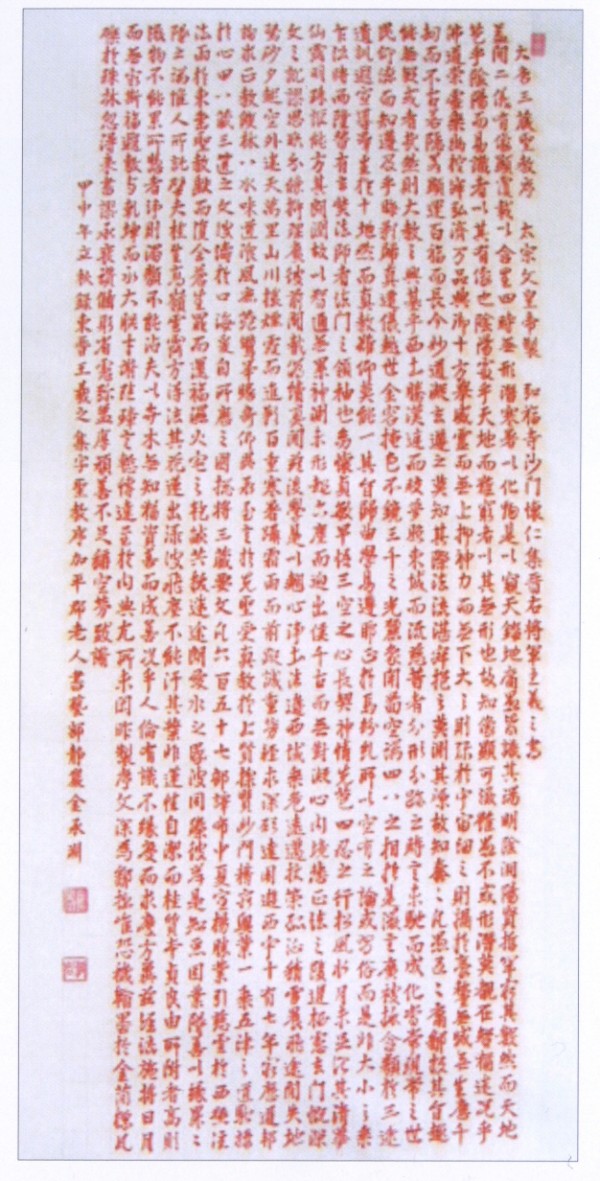 大唐三藏聖教序 太宗文皇帝製 弘福寺沙門懷仁集晉右將軍王羲之書
蓋聞二儀有像顯覆載以含生四時無形潛寒暑以化物是以窺天鑑地庸愚皆識其端明陰洞陽賢哲罕窮其數然而天地
苞乎陰陽而易識者以其有像也陰陽處乎天地而難窮者以其無形也故知像顯可徵雖愚不惑形潛莫覩在智猶迷況乎
佛道崇虛乘幽控寂弘濟萬品典御十方舉威靈而無上抑神力而無下大之則彌於宇宙細之則攝於豪釐無滅無生歷千
劫而不古若隱若顯運百福而長今妙道凝玄遵之莫知其際法流湛寂挹之莫測其源故知蠢蠢凡愚區區庸鄙投其旨趣
能無疑或者哉然則大教之興基乎西土騰漢庭而皎夢照東域而流慈昔者分形分跡之時言未馳而成化當常現常之世
民仰德而知遵及乎晦影歸真遷儀越世金容掩色不鏡三千之光麗象開圖空端四八之相於是微言廣被拯含類於三途
遺訓遐宣導群生於十地然而真教難仰莫能一其旨歸曲學易遵耶正於焉紛糺所以空有之論或習俗而是非大小之乘
乍沿時而隆替有玄奘法師者法門之領袖也幼懷貞敏早悟三空之心長契神情先苞四忍之行松風水月未足比其清華
仙露明珠詎能方其朗潤故以智通無累神測未形超六塵而迥出隻千古而無對凝心內境悲正法之陵遲栖慮玄門慨深
文之訛謬思欲分條析理廣彼前聞截偽續真開茲後學是以翹心淨土法遊西域乘危遠邁杖策孤征積雪晨飛途間失地
驚砂夕起空外迷天萬里山川撥煙霞而進影百重寒暑躡霜雨而前蹤誠重勞輕求深願達周遊西宇十有七年窮歷道邦
詢求正教雙林八水味道飡風鹿菀鷲峯瞻奇仰異承至言於先聖受真教於上賢探賾妙門精窮奧業一乘五律之道馳驟
於心田八藏三篋之文波濤於口海爰自所歷之國總將三藏要文凡六百五十七部譯布中夏宣揚勝業引慈雲於西極注
法雨於東垂聖教缺而復全蒼生罪而還福濕火宅之乾焰共拔迷途朗愛水之昏波同臻彼岸是知惡因業墜善以緣昇昇
墜之端惟人所託譬夫桂生高嶺雲露方得泫其花蓮出淥波飛塵不能汙其葉非蓮性自潔而桂質本貞良由所附者高則
微物不能累所憑者淨則濁類不能沾夫以卉木無知猶資善而成善況乎人倫有識不緣慶而求慶方冀茲經流施將日月
而無窮斯福遐敷與乾坤而永大朕才謝珪璋言慚博達至於內典尤所未閑昨製序文深為鄙拙唯恐穢翰墨於金簡標瓦
礫於珠林忽得來書謬承褒讚循躬省慮彌益厚顏善不足稱空勞致謝
甲申年立秋錄東晉王羲之集字聖教序加平郡老人書藝師靜巖金承湖